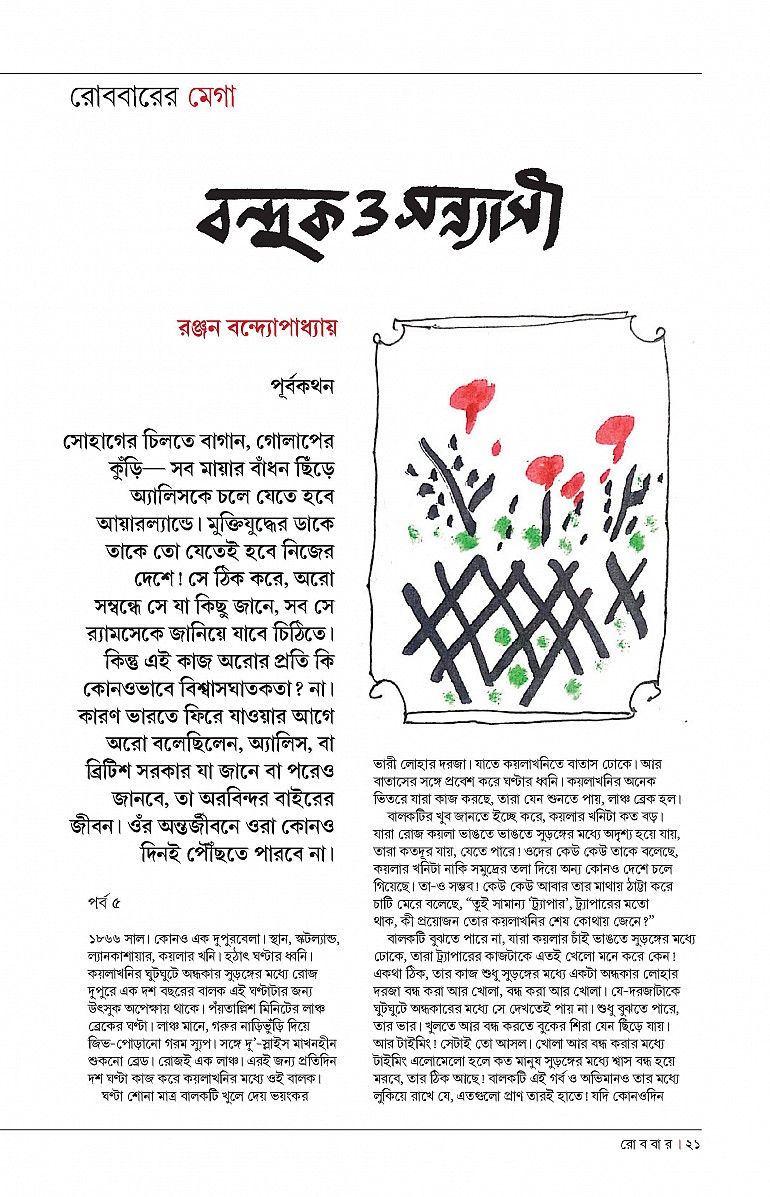 রোববারের মেগা
বন্দুক ও সন্ন্যাসী
রঞ্জন বন্দ্যোপাধ্যায়
পূর্বকথন
সোহাগের চিলতে বাগান, গোলাপের
কুঁড়ি— সব মায়ার বাঁধন ছিঁড়ে
অ্যালিসকে চলে যেতে হবে
আয়ারল্যান্ডে। মুক্তিযুদ্ধের ডাকে
তাকে তো যেতেই হবে নিজের
দেশে! সে ঠিক করে, অরো
সম্বন্ধে সে যা কিছু জানে, সব সে
র‍্যামসেকে জানিয়ে যাবে চিঠিতে।
কিন্তু এই কাজ অরোর প্রতি কি
কোনওভাবে বিশ্বাসঘাতকতা? না।
কারণ ভারতে ফিরে যাওয়ার আগে
অরো বলেছিলেন, অ্যালিস, বা
ব্রিটিশ সরকার যা জানে বা পরেও
জানবে, তা অরবিন্দর বাইরের
জীবন। ওঁর অন্তর্জীবনে ওরা কোনও
দিনই পৌঁছতে পারবে না।
পর্ব ৫
১৮৬৬ সাল। কোনও এক দুপুরবেলা। স্থান, স্কটল্যান্ড,
ল্যানকাশায়ার, কয়লার খনি। হঠাৎ ঘণ্টার ধ্বনি।
কয়লাখনির ঘুটঘুটে অন্ধকার সুড়ঙ্গের মধ্যে রোজ
দুপুরে এক দশ বছরের বালক এই ঘণ্টাটার জন্য
উৎসুক অপেক্ষায় থাকে। পঁয়তাল্লিশ মিনিটের লাঞ্চ
ব্রেকের ঘণ্টা। লাঞ্চ মানে, গরুর নাড়িভুঁড়ি দিয়ে
জিভ-পোড়ানো গরম স্যুপ। সঙ্গে দু'-স্লাইস মাখনহীন
শুকনো ব্রেড। রোজই এক লাঞ্চ। এরই জন্য প্রতিদিন
দশ ঘণ্টা কাজ করে কয়লাখনির মধ্যে ওই বালক।
ঘণ্টা শোনা মাত্র বালকটি খুলে দেয় ভয়ংকর
ভারী লোহার দরজা। যাতে কয়লাখনিতে বাতাস ঢোকে। আর
বাতাসের সঙ্গে প্রবেশ করে ঘণ্টার ধ্বনি। কয়লাখনির অনেক
ভিতরে যারা কাজ করছে, তারা যেন শুনতে পায়, লাঞ্চ ব্রেক হল।
বালকটির খুব জানতে ইচ্ছে করে, কয়লার খনিটা কত বড়।
যারা রোজ কয়লা ভাঙতে ভাঙতে সুড়ঙ্গের মধ্যে অদৃশ্য হয়ে যায়,
তারা কতদূর যায়, যেতে পারে! ওদের কেউ কেউ তাকে বলেছে,
কয়লার খনিটা নাকি সমুদ্রের তলা দিয়ে অন্য কোনও দেশে চলে
গিয়েছে। তা-ও সম্ভব! কেউ কেউ আবার তার মাথায় ঠাট্টা করে
চাটি মেরে বলেছে, “তুই সামান্য ‘ট্র্যাপার’, ট্র্যাপারের মতো
থাক, কী প্রয়োজন তোর কয়লাখনির শেষ কোথায় জেনে?”
বালকটি বুঝতে পারে না, যারা কয়লার চাঁই ভাঙতে সুড়ঙ্গের মধ্যে
ঢোকে, তারা ট্র্যাপারের কাজটাকে এতই খেলো মনে করে কেন!
একথা ঠিক, তার কাজ শুধু সুড়ঙ্গের মধ্যে একটা অন্ধকার লোহার
দরজা বন্ধ করা আর খোলা, বন্ধ করা আর খোলা। যে-দরজাটাকে
ঘুটঘুটে অন্ধকারের মধ্যে সে দেখতেই পায় না। শুধু বুঝতে পারে,
তার ভার। খুলতে আর বন্ধ করতে বুকের শিরা যেন ছিঁড়ে যায়।
আর টাইমিং! সেটাই তো আসল। খোলা আর বন্ধ করার মধ্যে
টাইমিং এলোমেলো হলে কত মানুষ সুড়ঙ্গের মধ্যে শ্বাস বন্ধ হয়ে
মরবে, তার ঠিক আছে! বালকটি এই গর্ব ও অভিমানও তার মধ্যে
লুকিয়ে রাখে যে, এতগুলো প্রাণ তারই হাতে! যদি কোনওদিন
রো ব বা র । ২১